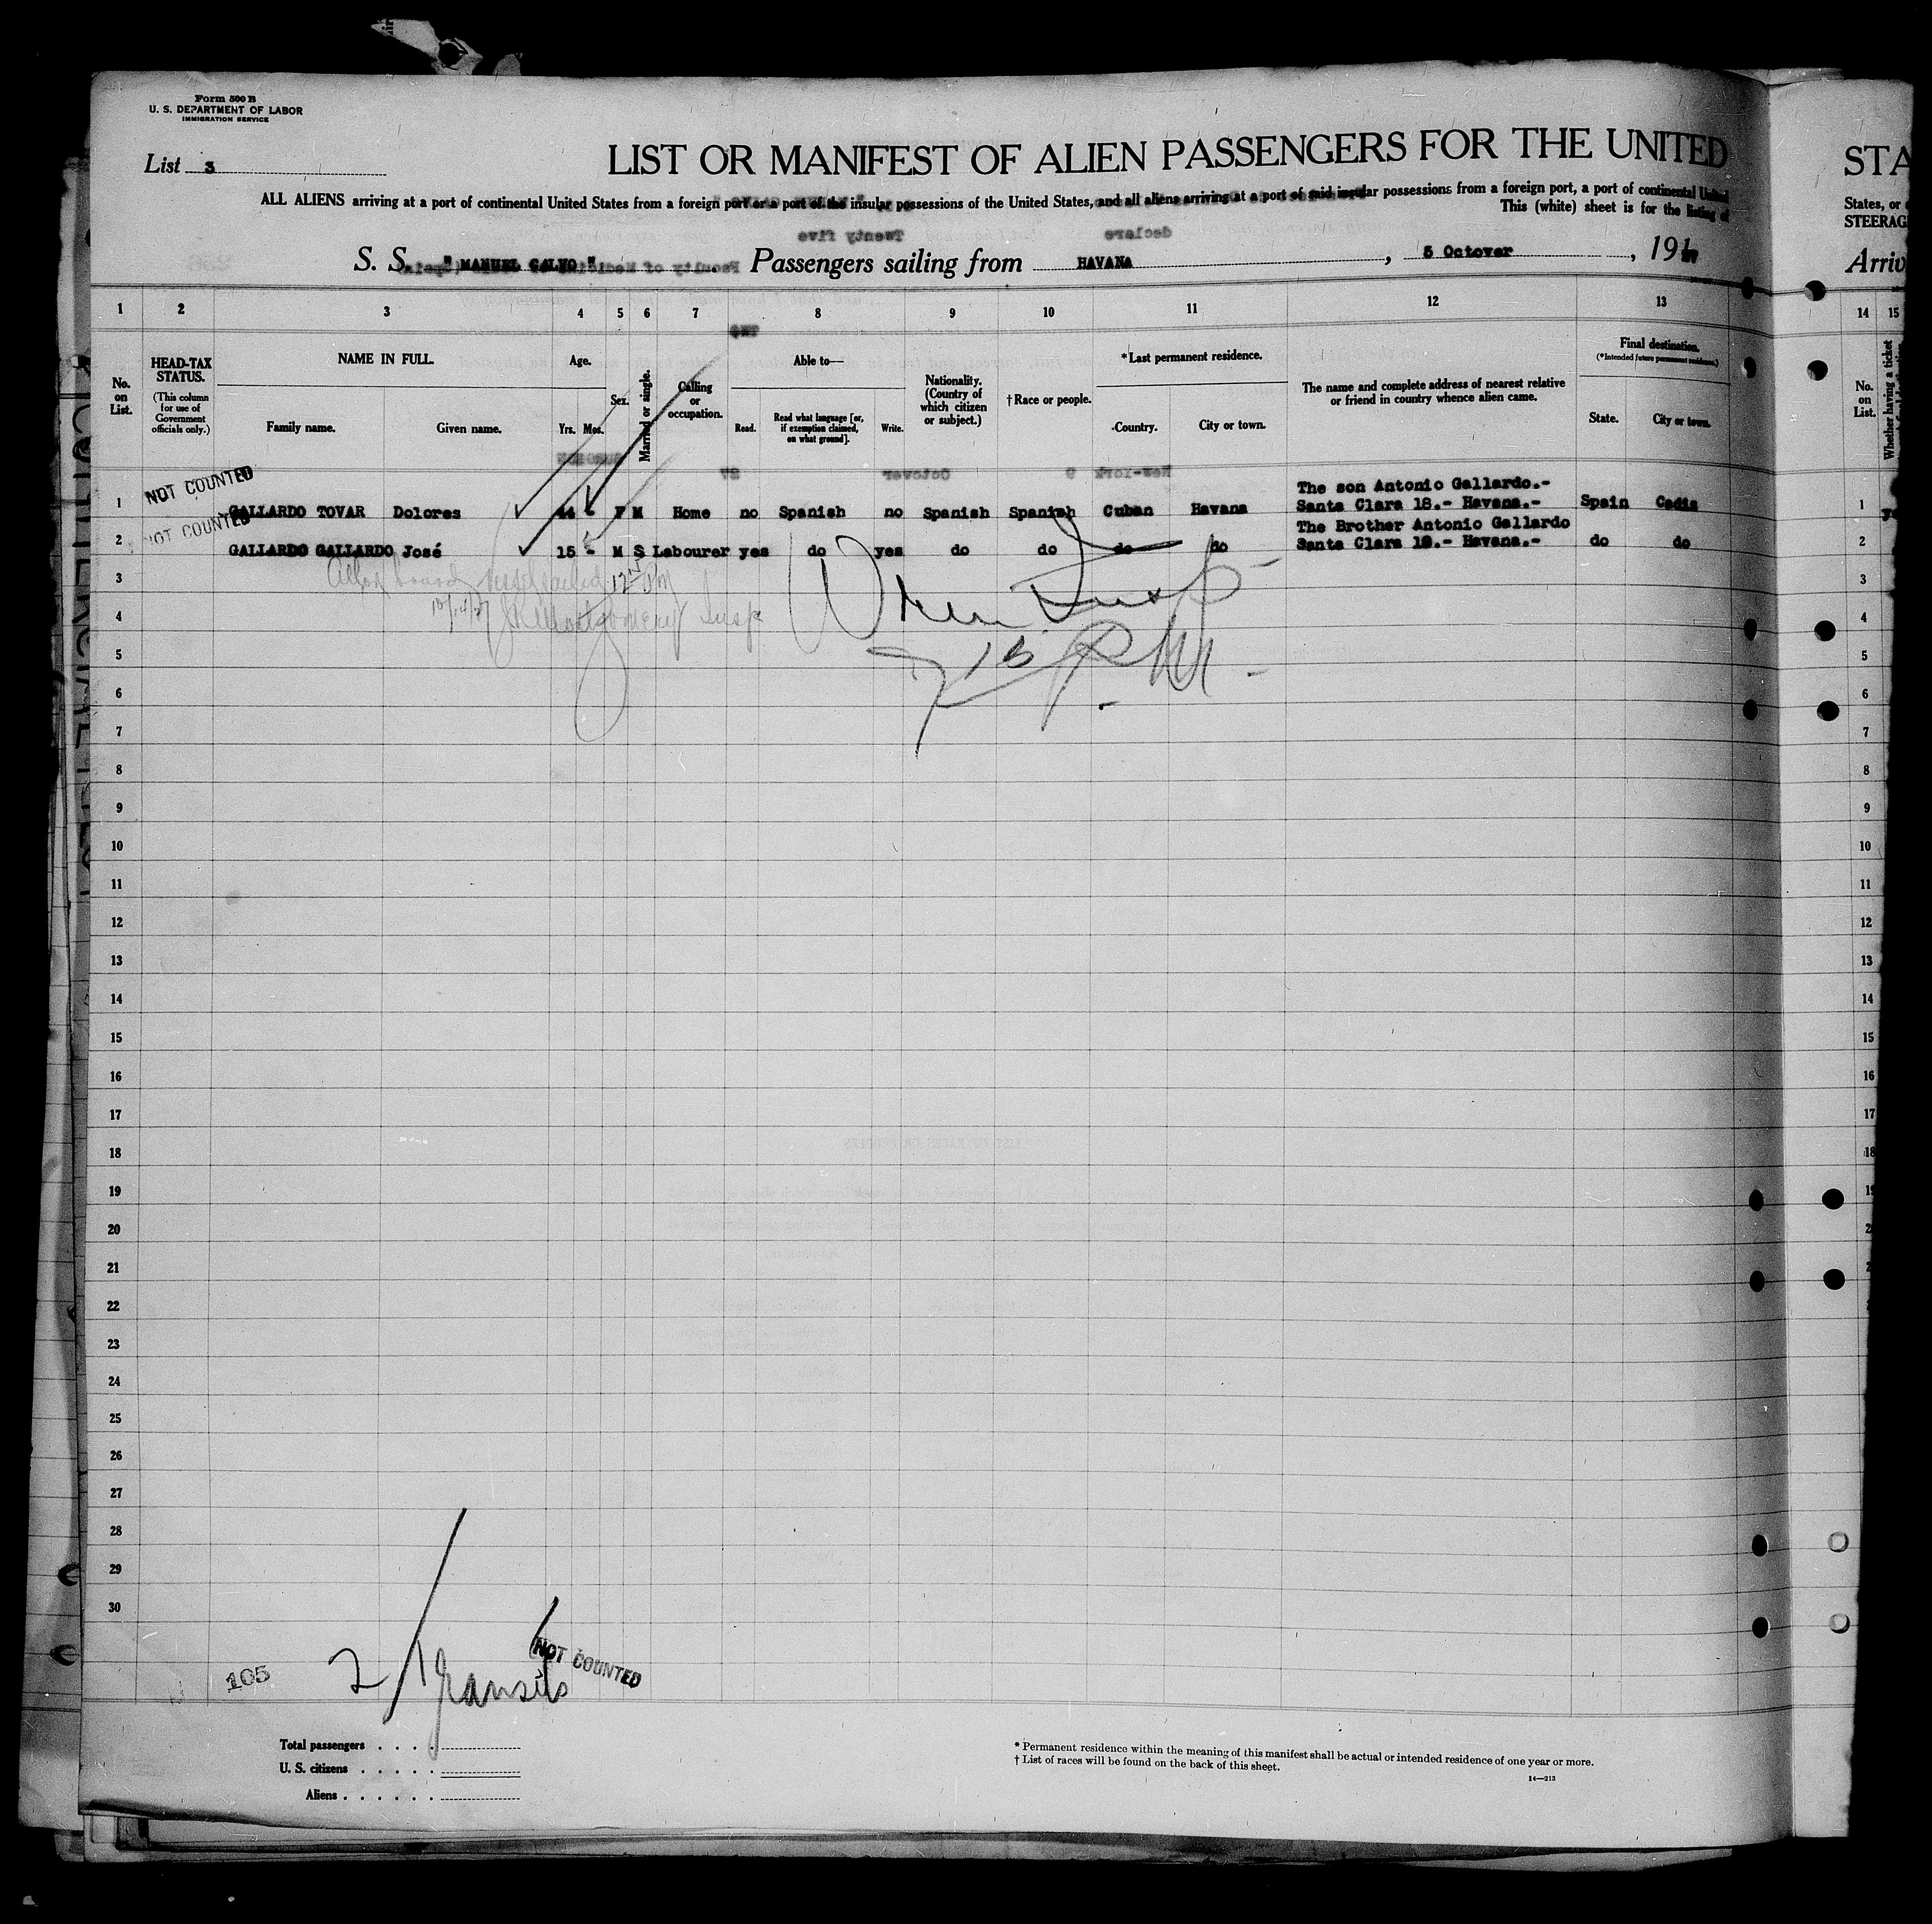 Form 500 B
U. S. DEPARTMENT OF LABOR
IMMIGRATION SERVICE
List 3
LIST OR MANIFEST OF ALIEN PASSENGERS FOR THE UNITED
STA
ALL ALIENS arriving at a port of continental United States from a foreign port or a port of the insular possessions of the United States, and all aliens arriving at a port of said insular possessions from a foreign port, a port of continental United
States, or
This (white) sheet is for the listing of
STEERAG
Twenty five declare
S. S. " MANUEL CALVO " Passengers sailing from HAVANA, 5 Octover, 19
Arriv
1 2 3 4 5 6 7 8 9 10 11 12 13 14 15
No. on List.
HEAD-TAX STATUS.
(This column for use of Government officials only.)
NAME IN FULL.
Family name. Given name.
Age.
Yrs. Mos.
Sex.
Married or single.
Calling or occupation.
Able to—
Read. Read what language [or, if exemption claimed, on what ground]. Write.
Nationality. (Country of which citizen or subject.)
†Race or people.
*Last permanent residence.
Country. City or town.
The name and complete address of nearest relative or friend in country whence alien came.
Final destination.
(*Intended future permanent residence.)
State. City or town.
No. on List.
Whether having a ticket
Octover 9 New-York
NOT COUNTED
The son Antonio Gallardo.-
1 GALLARDO TOVAR Dolores 44 - F M Home no Spanish no Spanish Spanish Cuban Havana Santa Clara 18.- Havana.- Spain Cadiz 1
NOT COUNTED
The Brother Antonio Gallardo
2 GALLARDO GALLARDO José 15 - M S Labourer yes do yes do do do do Santa Clara 18.- Havana.- do do 2
3 3
4 4
5 5
6 6
7 7
8 8
9 9
10 10
11 11
12 12
13 13
14 14
15 15
16 16
17 17
18 18
19
20
21
22
23
24
25
26
27
28
29
30
105
2 Transits
NOT COUNTED
Total passengers . . . .
U. S. citizens . . . . .
Aliens . . . . . .
* Permanent residence within the meaning of this manifest shall be actual or intended residence of one year or more.
† List of races will be found on the back of this sheet.
14—213